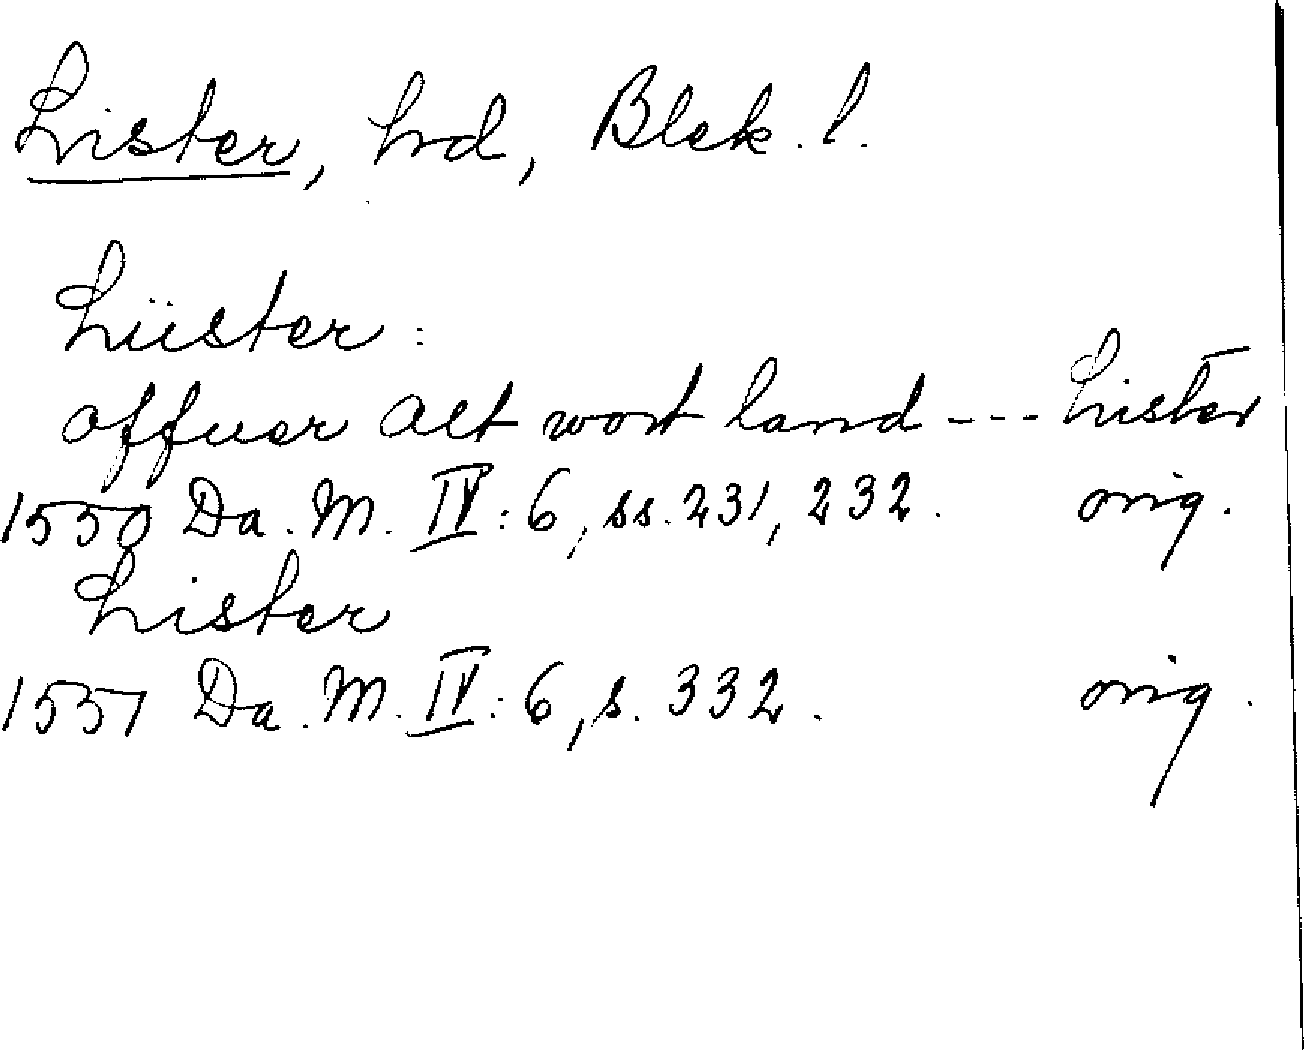 Lister, hd, Blek. l.
Liister:
offuer alt wort land --- Lister
1550 Da. M. IV: 6, ss. 231, 232. orig.
Lister
1551 Da. M. IV: 6, s. 332. orig.